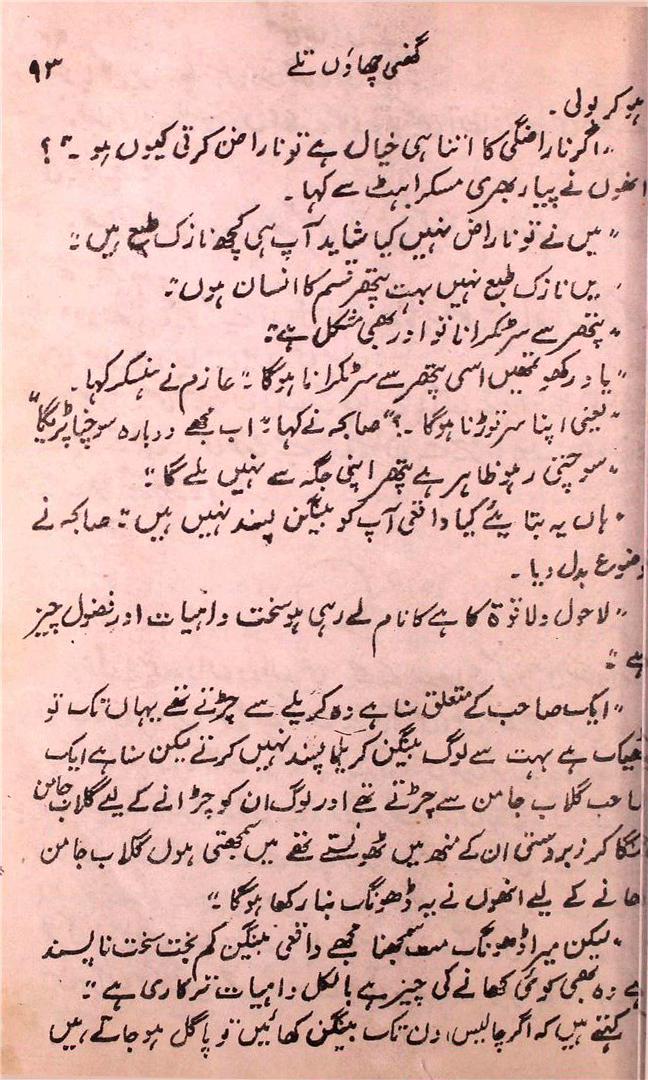 ۹۳
گھنی چھاؤں تلے
ہو کر بولی ۔
"اگر ناراضگی کا اتنا ہی خیال ہے تو ناراض کرتی کیوں ہو ۔"؟
انھوں نے پیار بھری مسکراہٹ سے کہا ۔
"میں نے تو ناراض نہیں کیا شاید آپ ہی کچھ نازک طبع ہیں ۔"
میں نازک طبع نہیں بہت پتھر قسم کا انسان ہوں ۔"
"پتھر سے سر ٹکرانا تو اور بھی مشکل ہے ۔"
"یاد رکھو تمھیں اسی پتھر سے سر ٹکرانا ہوگا ۔" عازم نے ہنسکر کہا ۔
"یعنی اپنا سر توڑنا ہوگا ۔؟" صابحہ نے کہا ۔" اب مجھے دوبارہ سوچنا پڑیگا"
"سوچتی رہو ظاہر ہے پتھر اپنی جگہ سے نہیں ہلے گا ۔"
"ہاں یہ بتایئے کیا واقعی آپ کو بینگن پسند نہیں ہیں ۔" صابحہ نے
موضوع بدل دیا ۔
"لاحول ولا قوۃ کاہے کا نام لے رہی ہو سخت واہیات اور فضول چیز
ہے ۔"
"ایک صاحب کے متعلق سنا ہے وہ کریلے سے چڑتے تھے یہاں تک تو
ٹھیک ہے بہت سے لوگ بینگن کریلا پسند نہیں کرتے لیکن سنا ہے ایک
صاحب گلاب جامن سے چڑتے تھے اور لوگ ان کو چڑانے کے لیے گلاب جامن
منگا کر زبردستی ان کے منھ میں ٹھونستے تھے میں سمجھتی ہوں گلاب جامن
کھانے کے لیے انھوں نے یہ ڈھونگ بنا رکھا ہوگا ۔"
"لیکن میرا ڈھونگ مت سمجھنا مجھے واقعی بینگن کم بخت سخت ناپسند
ہے وہ بھی کوئی کھانے کی چیز ہے بالکل واہیات ترکاری ہے ۔"
کہتے ہیں کہ اگر چالیس دن تک بینگن کھائیں تو پاگل ہو جاتے ہیں